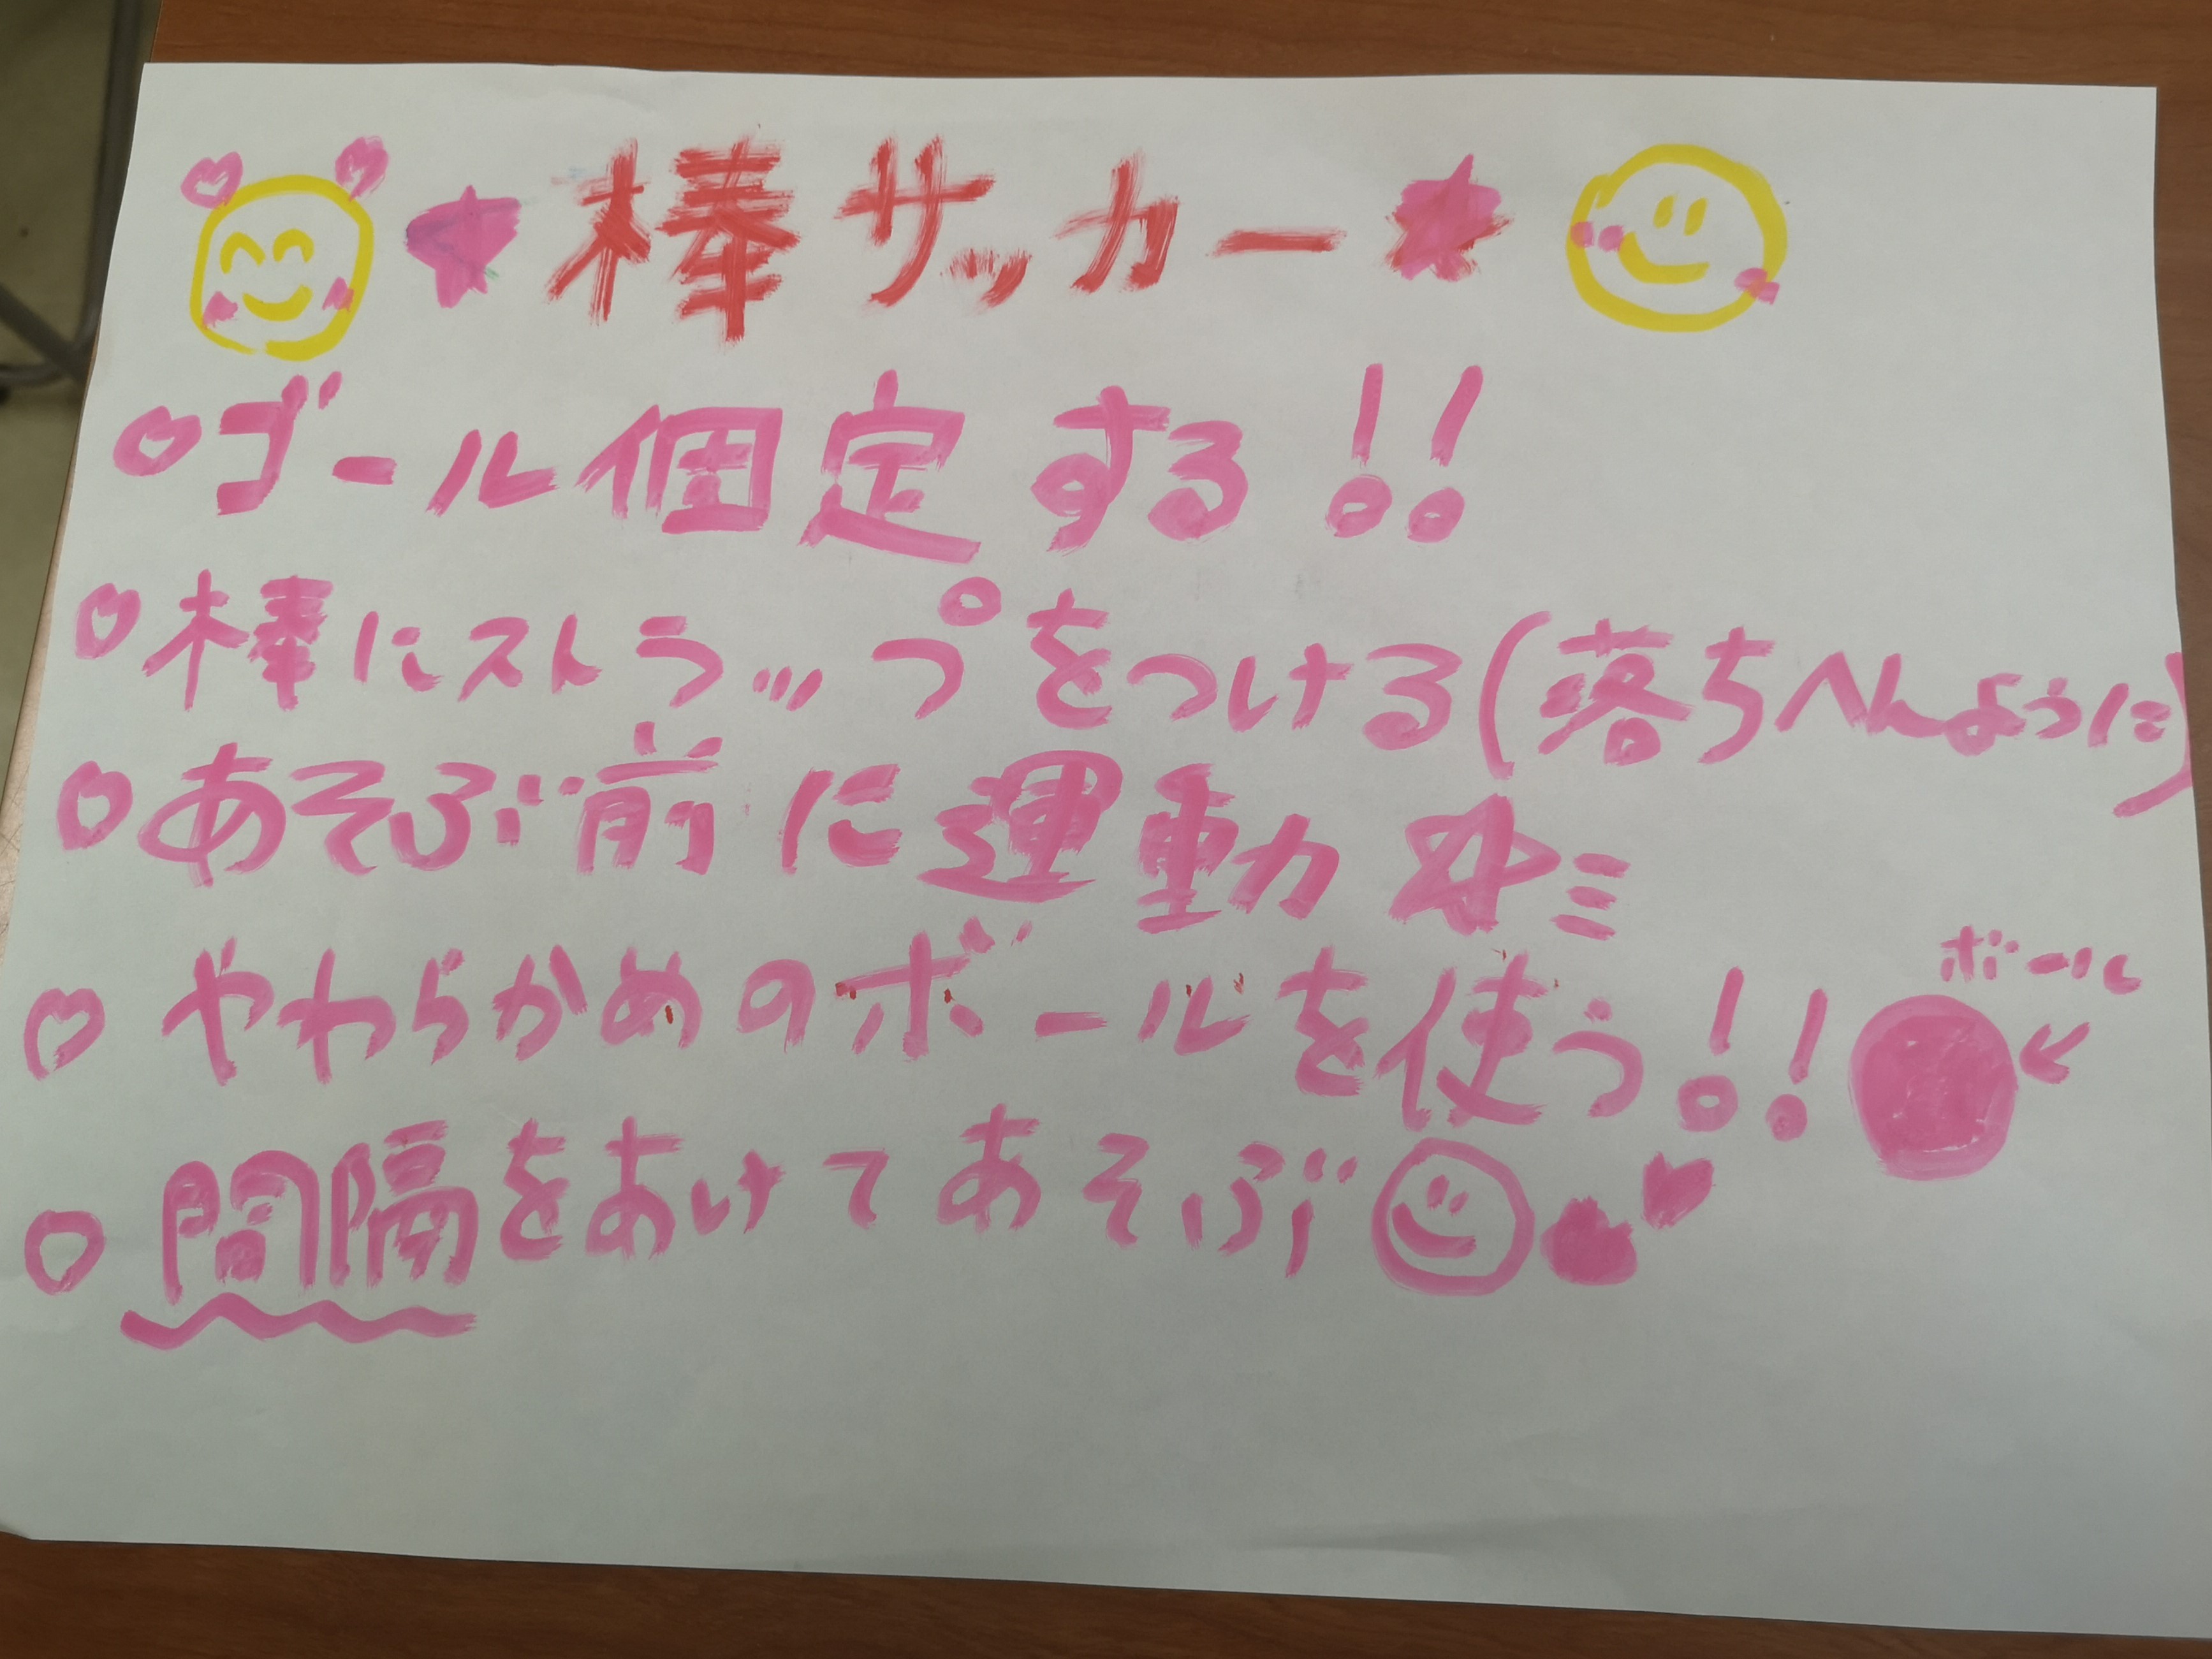 ★棒サッカー★
♡ゴール個定する!!
♡棒にストラップをつける(落ちへんように)
♡あそぶ前に運動☆ミ
♡やわらかめのボールを使う!!
ボール
♡間隔をあけてあそぶ